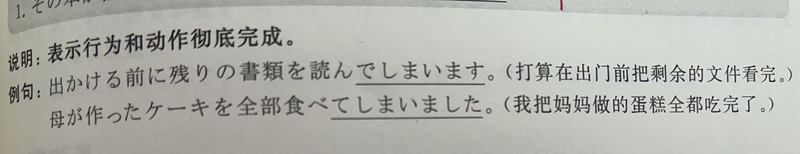 1. その本が
说明：表示行为和动作彻底完成。
例句：出かける前に残りの書類を読んでしまいます。（打算在出门前把剩余的文件看完。）
母が作ったケーキを全部食べてしまいました。（我把妈妈做的蛋糕全都吃完了。）